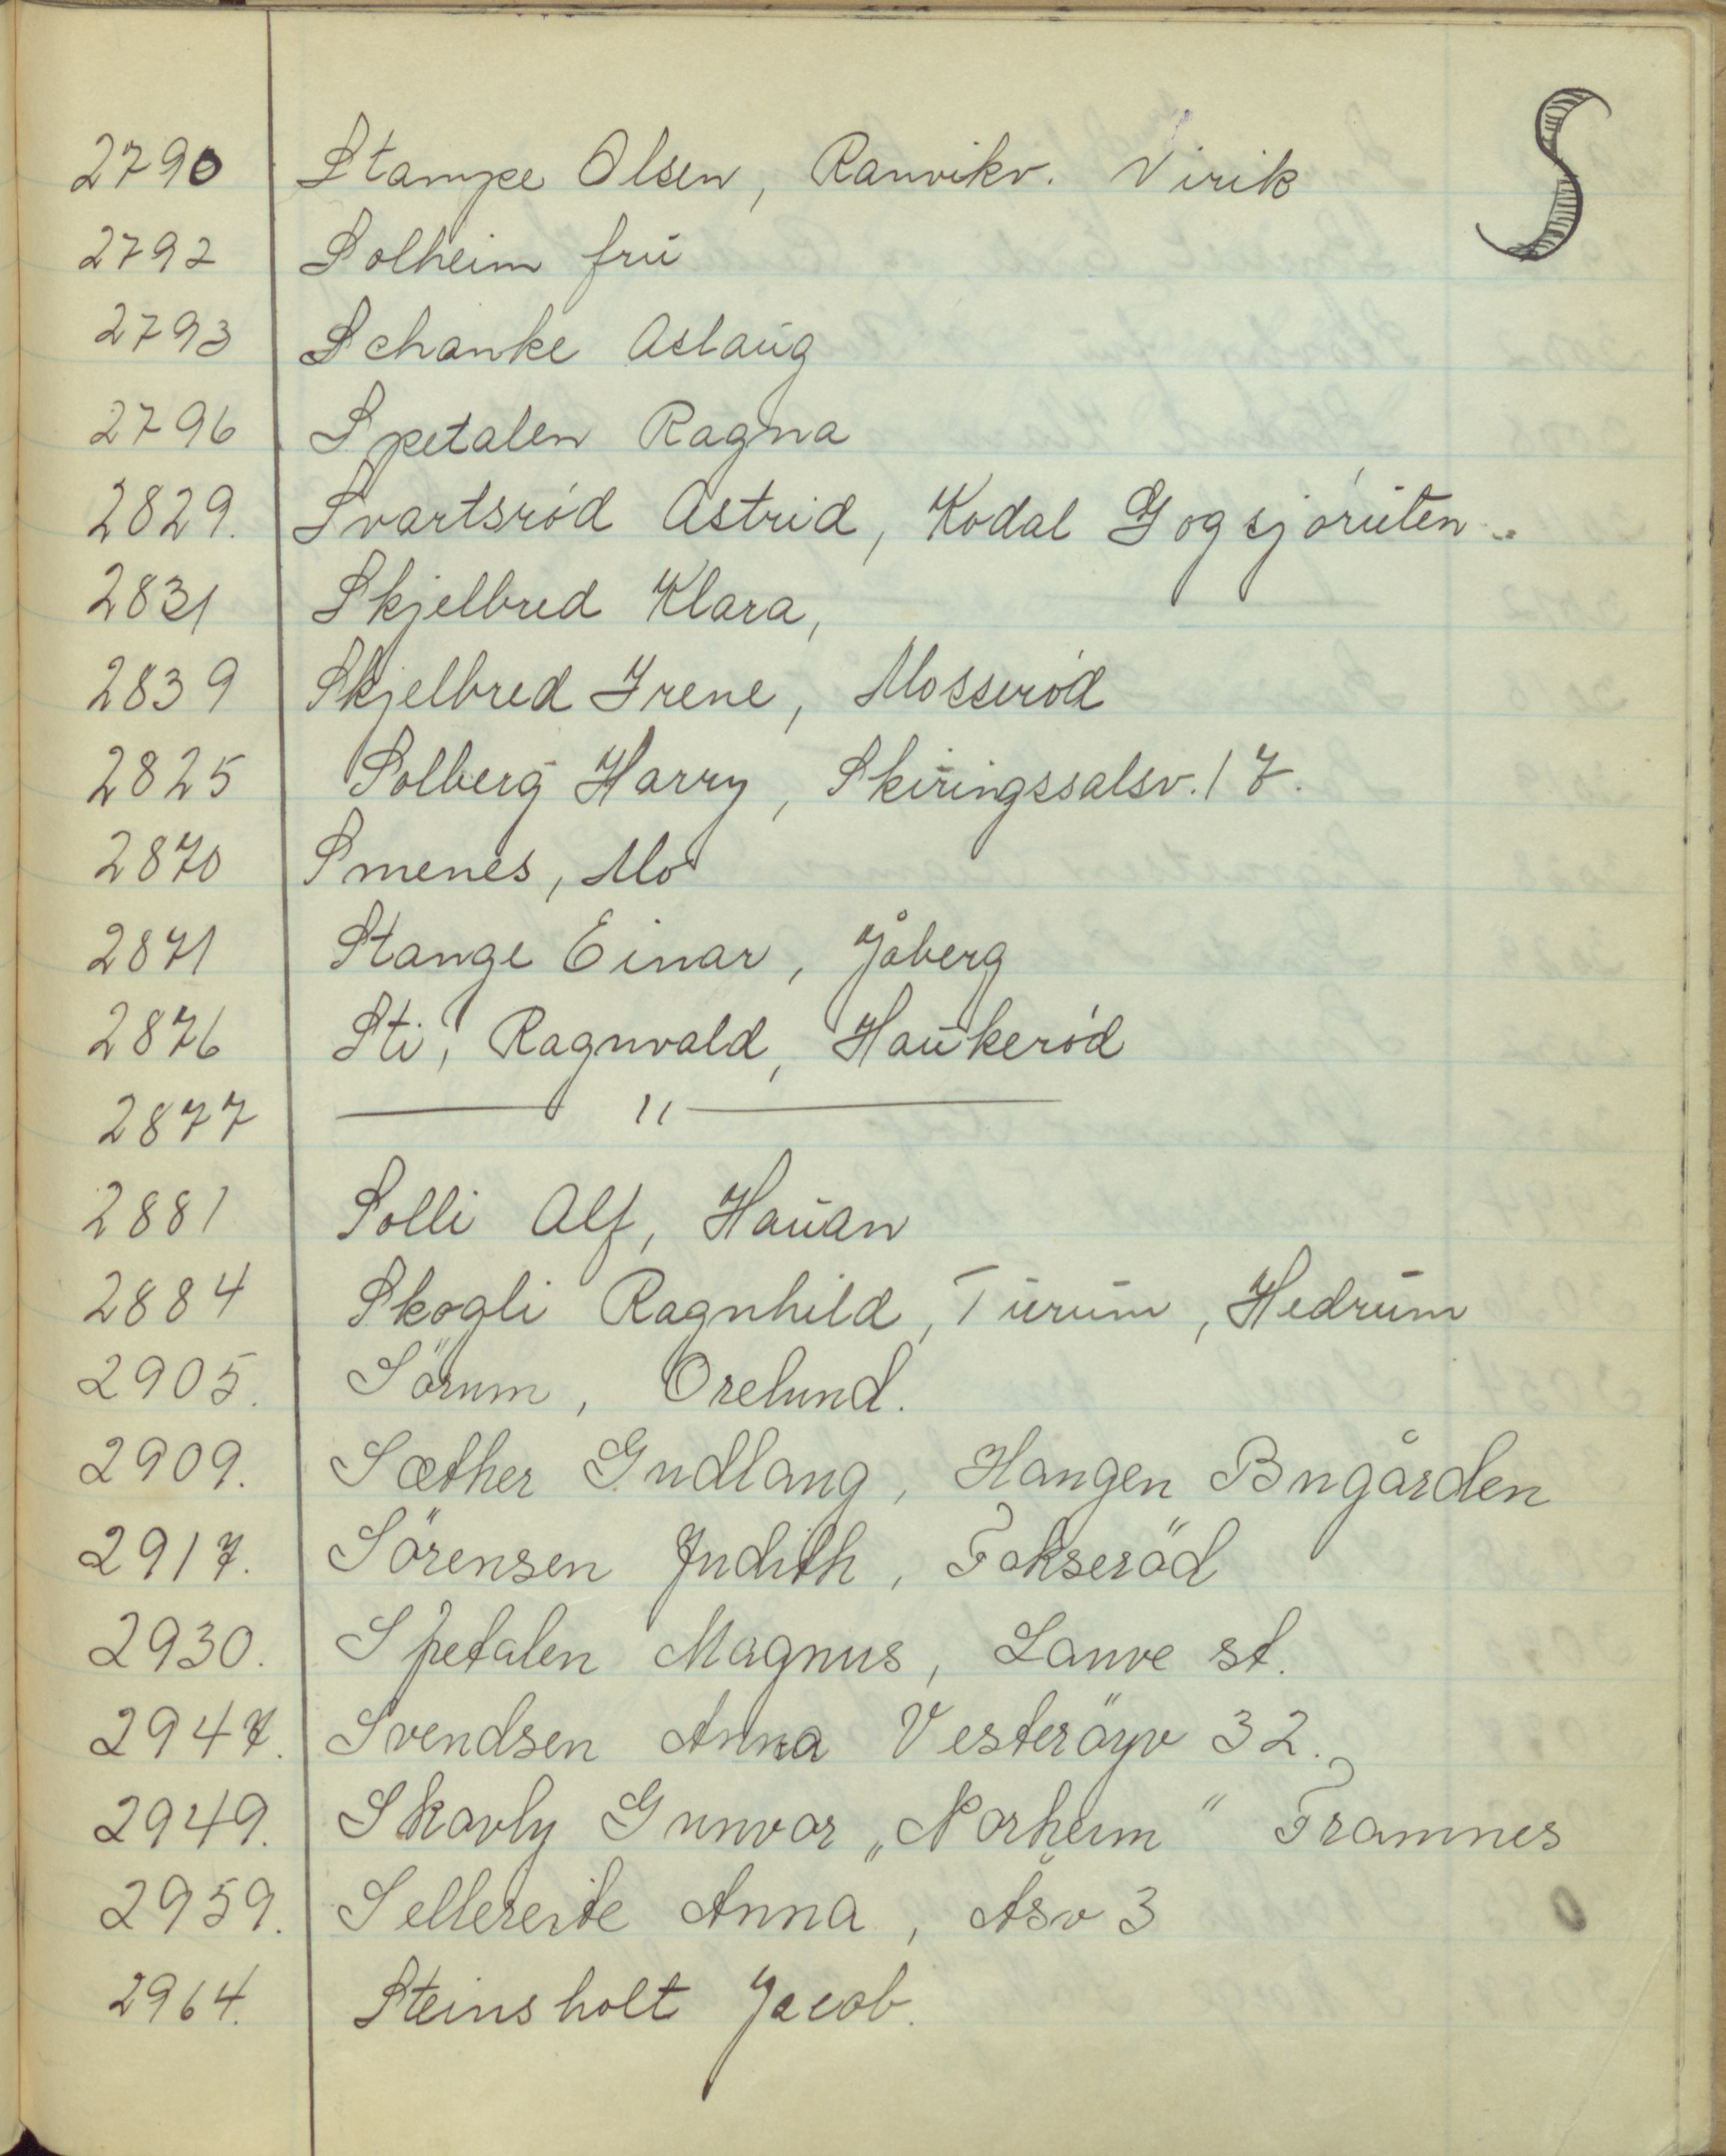 S
2790 Stampe Olsen, Ranvikv. Virik
2792 Solheim frü
2793 Schanke Aslaüg
2796 Spetalen Ragna
2829. Svartsrød Astrid, Kodal Gogsjørüten
2831 Skjelbred Klara,
2839 Skjelbred Irene, Mosserød
2825 Solberg Harry, Skiringssalsv. 17.
2870 Smenes, Mo
2871 Stange Einar, Jåberg
2876 Sti, Ragnvald, Haükerød
2877 — " —
2881 Solli Alf, Haüan
2884 Skogli Ragnhild, Türüm, Hedrüm
2905. Sörum, Orelund.
2909. Sæther Gudlaug, Haugen Bugården
2917. Sörensen Judith, Fokseröd
2930. Spetalen Magnus, Lauve st.
2947. Svendsen Anna Vesteröyv 32.
2949. Skavly Gunvor „Norheim" Framnes
2959. Sellereite Anna, Åsv 3
2964. Steinsholt Jacob.